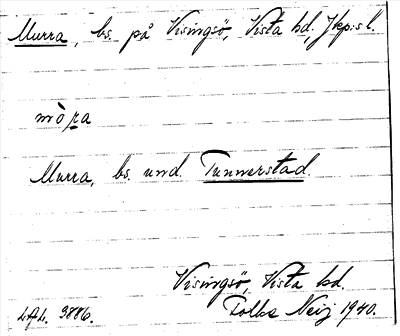 Murra, bs. på Visingsö, Vista hd, Jkp:s l.
mò̀ra
Murra, bs. und. Tunnerstad.
Visingsö, Vista hd.
L.A.L. 3886. Folke Neij 1940.